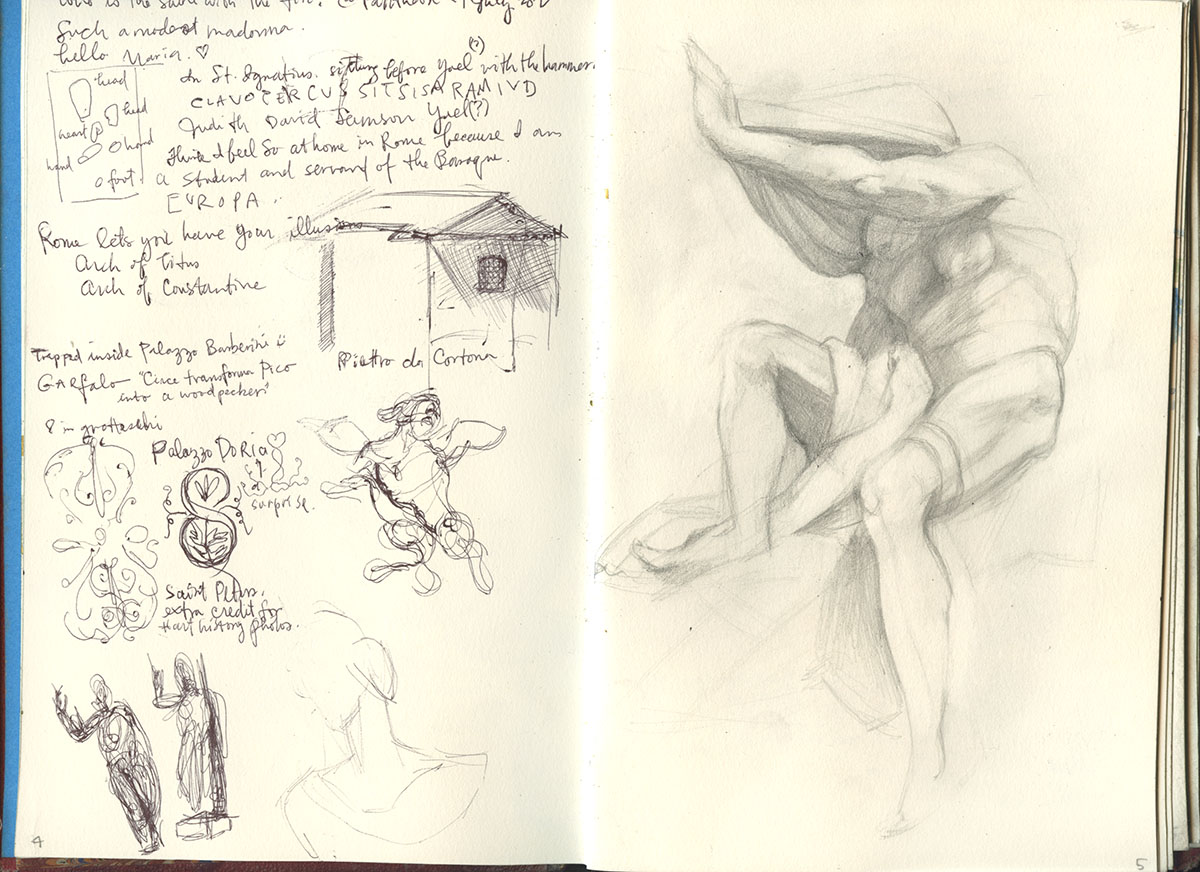 Such a modest madonna.
hello Maria. ♡
head
head
heart
hand
hand
foot.
In St. Ignatius. sitting before Yael (?) with the hammer.
CLAVO CERCVS SITSISARAMIVD
Judith David Samson Yael (?)
I think I feel so at home in Rome because I am
a student and servant of the Baroque.
EUROPA.
Rome lets you have your illusions
Arch of Titus
Arch of Constantine
Trapped inside Palazzo Barberini
GARfalo "Circe transforma Pico
into a woodpecker"
Pietro da Cortona
8 in grotteschi
Palazzo Doria
a
surprise.
Saint Peters.
extra credit for
art history photos.
4
5